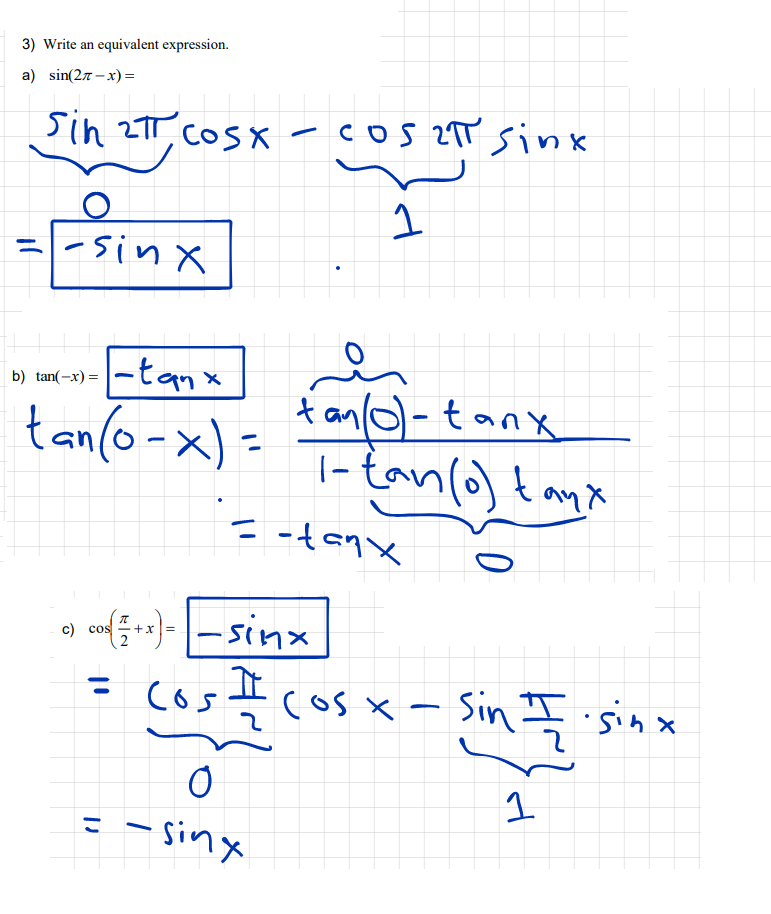 3) Write an equivalent expression.
a) sin(2π − x) =
sin 2π cosx − cos 2π sinx
0
1
= -sin x
b) tan(−x) = -tanx
0
tan(0-x) = tan(0) - tanx
1 - tan(0) tanx
= -tanx
0
c) cos(π/2 + x) = -sinx
= cos π/2 cos x - sin π/2 · sin x
0
1
= - sinx